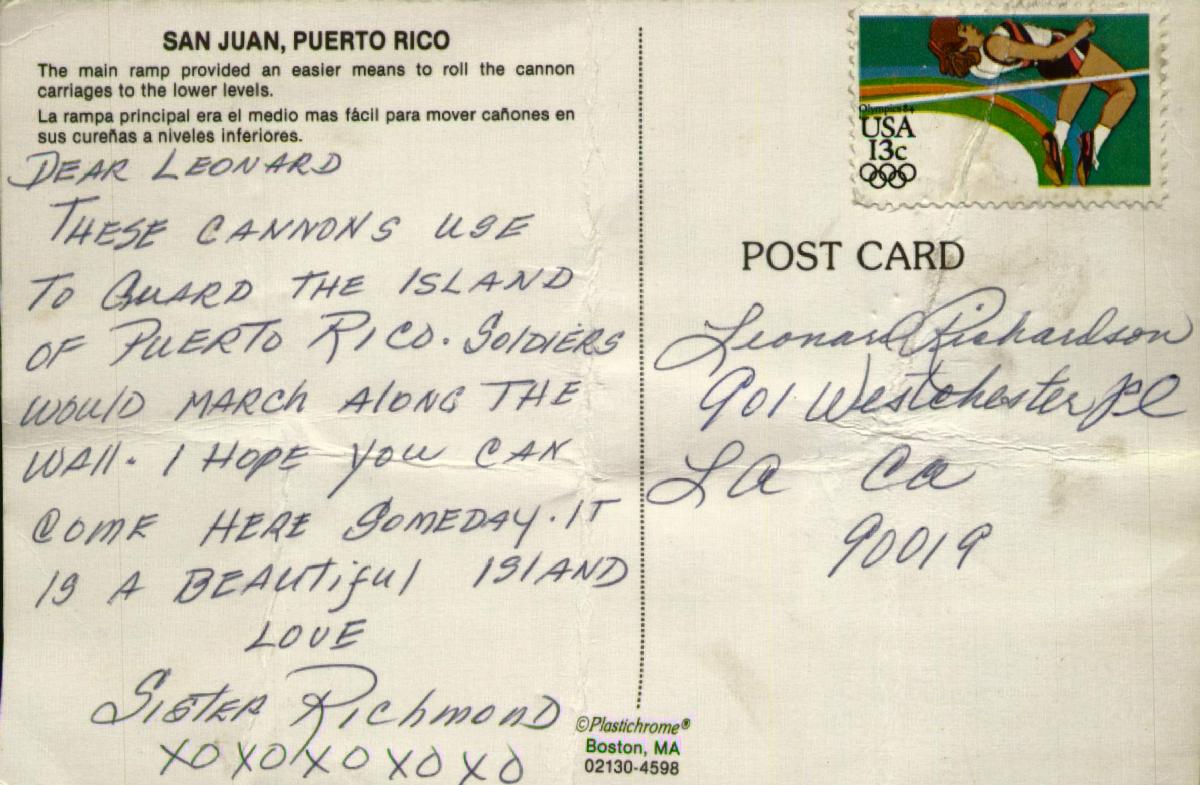 SAN JUAN, PUERTO RICO
The main ramp provided an easier means to roll the cannon
carriages to the lower levels.
La rampa principal era el medio mas fácil para mover cañones en
sus cureñas a niveles inferiores.
DEAR LEONARD
THESE CANNONS USE
TO GUARD THE ISLAND
OF PUERTO RICO. SOLDIERS
WOULD MARCH ALONG THE
WALL. I HOPE YOU CAN
COME HERE SOMEDAY. IT
IS A BEAUTIFUL ISLAND
LOVE
SISTER RICHMOND
XOXOXOXOXO
©Plastichrome®
Boston, MA
02130-4598
Olympics 84
USA
13c
POST CARD
Leonard Richardson
901 Westchester Pl
LA Ca
90019